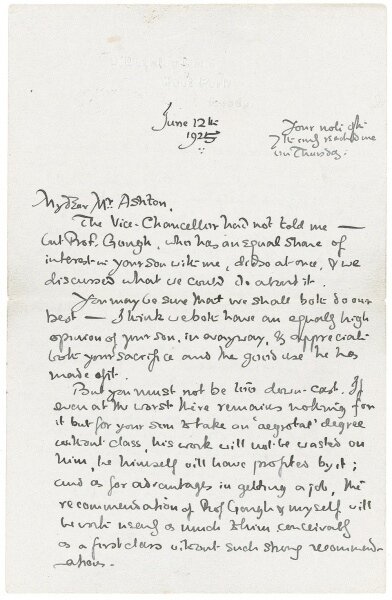 June 12th
1925
Your note of the
7th only reached me
on Thursday.
My dear Mr Ashton,
The Vice-Chancellor had not told me —
but Prof. Gough, who has an equal share of
interest in your son with me, did so at once, & we
discussed what we could do about it.
You may be sure that we shall both do our
best — I think we both have an equally high
opinion of your son, in every way, & appreciate
both your sacrifice and the good use he has
made of it.
But you must not be too down-cast. If
even at the worst there remains nothing for
it but for your son to take an 'aegrotat' degree
without class, his work will not be wasted on
him, he himself will have profited by it;
and as for advantages in getting a job, the
recommendation of Prof Gough & myself will
be worth nearly as much to him conceivably
as a first class without such strong recommend-
ations.